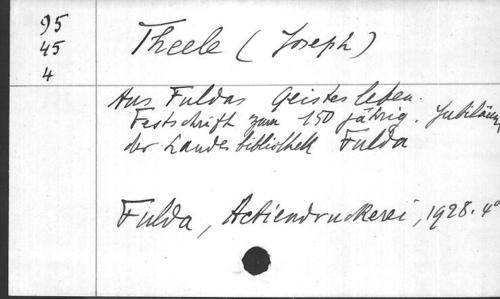 95
45
4
Theele (Joseph)
Aus Fuldas Geistesleben.
Festschrift zum 150 jährig. Jubiläum
der Landesbibliothek Fulda
Fulda, Actiendruckerei, 1928. 4°